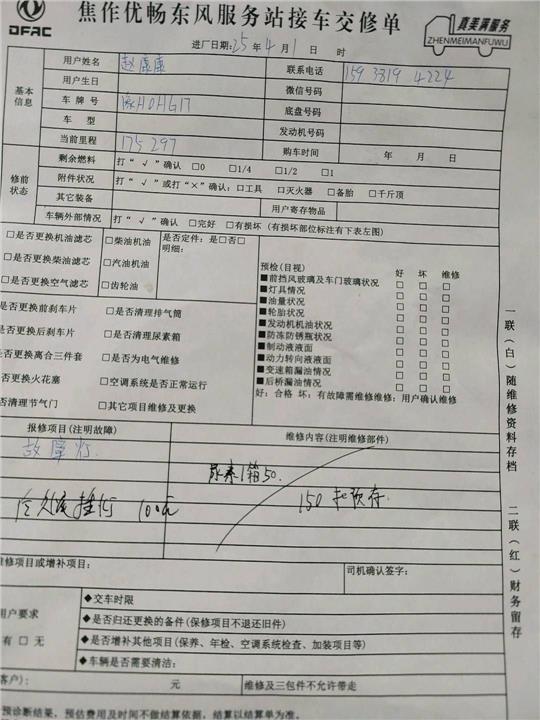 DFAC
焦作优畅东风服务站接车交修单
真美满服务
ZHENMEIMANFUWU
进厂日期:25年4月1日 时
基本信息
用户姓名 赵康康 联系电话 159 3819 4224
用户生日 微信号码
车牌号 豫H0HG17 底盘号码
车 型 发动机号码
当前里程 175297 购车时间 年 月 日
修前状态
剩余燃料 打“√”确认 □0 □1/4 □1/2 □1
附件状况 打“√”或打“×”确认:□工具 □灭火器 □备胎 □千斤顶
其它装备 用户寄存物品
车辆外部情况 打“√”确认 □完好 □有损坏(有损坏部位标注有下表左图)
□是否更换机油滤芯 □柴油机油 是否定件:是□否□
明细:
□是否更换柴油滤芯 □汽油机油
□是否更换空气滤芯 □齿轮油
预检(目视) 好 坏 维修
■前挡风玻璃及车门玻璃状况 □ □ □
■灯具情况 □ □ □
■油量状况 □ □ □
■轮胎状况 □ □ □
■发动机机油状况 □ □ □
■防冻防锈瓶状况 □ □ □
■制动液液面 □ □ □
■动力转向液液面 □ □ □
■变速箱漏油情况 □ □ □
■后桥漏油情况 □ □ □
好:合格 坏:有故障需维修维修:用户确认维修
是否更换前刹车片 □是否清理排气筒
是否更换后刹车片 □是否清理尿素箱
是否更换离合三件套 □是否为电气维修
是否更换火花塞 □空调系统是否正常运行
否清理节气门 □其它项目维修及更换
报修项目(注明故障) 维修内容(注明维修部件)
故障灯
尿素1箱50.
100元
150扣预存.
维修项目或增补项目: 司机确认签字:
用户要求
有□无
◆交车时限
◆是否归还更换的备件(保修项目不退还旧件)
◆是否增补其他项目(保养、年检、空调系统检查、加装项目等)
◆车辆是否需要清洁:
客户): 元 维修及三包件不允许带走
预诊断结果,预估费用及时间不做结算依据,结算以结算单为准。
一联(白)随维修资料存档
二联(红)财务留存